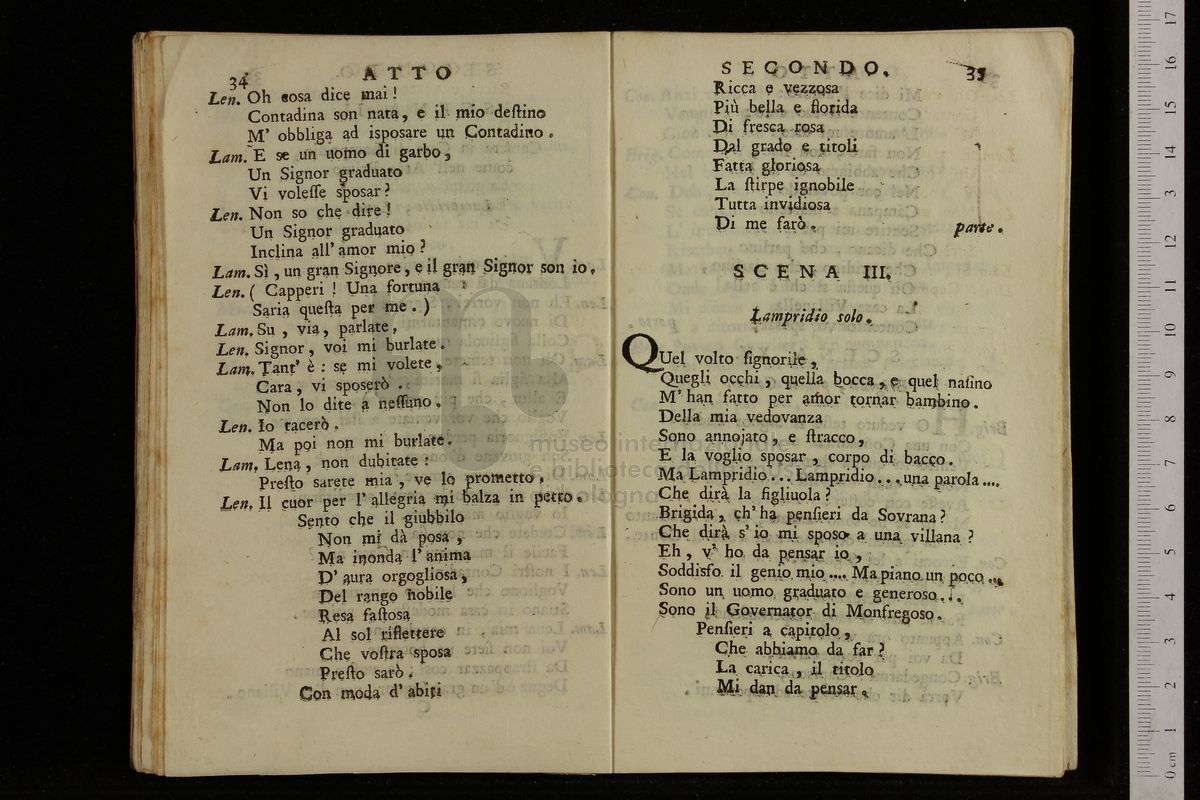 34 ATTO
Len. Oh cosa dice mai!
Contadina son nata, e il mio deſtino
M' obbliga ad isposare un Contadino.
Lam. E se un uomo di garbo,
Un Signor graduato
Vi voleſſe sposar?
Len. Non so che dire!
Un Signor graduato
Inclina all' amor mio?
Lam. Sì, un gran Signore, e il gran Signor son io.
Len. (Capperi! Una fortuna
Saria queſta per me.)
Lam. Su, via, parlate.
Len. Signor, voi mi burlate.
Lam. Tant' è: se mi volete,
Cara, vi sposerò.
Non lo dite a neſſuno.
Len. Io tacerò.
Ma poi non mi burlate.
Lam. Lena, non dubitate:
Preſto sarete mia, ve lo prometto.
Len. Il cuor per l' allegria mi balza in petto.
Sento che il giubbilo
Non mi dà posa,
Ma inonda l' anima
D' aura orgogliosa,
Del rango nobile
Resa faſtosa
Al sol riflettere
Che voſtra sposa
Preſto sarò.
Con moda d' abiti
SECONDO. 35
Ricca e vezzosa
Più bella e florida
Di fresca rosa
Dal grado e titoli
Fatta gloriosa
La ſtirpe ignobile
Tutta invidiosa
Di me farò. parte.
SCENA III.
Lampridio solo.
QUel volto ſignorile,
Quegli occhi, quella bocca, e quel naſino
M' han fatto per amor tornar bambino.
Della mia vedovanza
Sono annojato, e ſtracco,
E la voglio sposar, corpo di bacco.
Ma Lampridio... Lampridio... una parola....
Che dirà la figliuola?
Brigida, ch' ha penſieri da Sovrana?
Che dirà s' io mi sposo a una villana?
Eh, v' ho da pensar io,
Soddisfo il genio mio.... Ma piano un poco...
Sono un uomo graduato e generoso...
Sono il Governator di Monfregoso.
Penſieri a capitolo,
Che abbiamo da far?
La carica, il titolo
Mi dan da pensar.
museo internazionale
e biblioteca della musica
di bologna